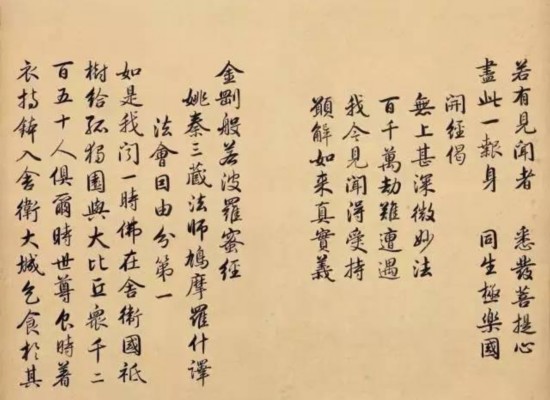 若有見聞者　悉發菩提心
盡此一報身　同生極樂國
開經偈
無上甚深微妙法
百千萬劫難遭遇
我今見聞得受持
願解如来真實義
金剛般若波羅蜜經
姚秦三藏法師鳩摩羅什譯
法會因由分第一
如是我聞一時佛在舍衛國祇
樹給孤獨園與大比丘眾千二
百五十人俱爾時世尊食時著
衣持鉢入舍衛大城乞食於其